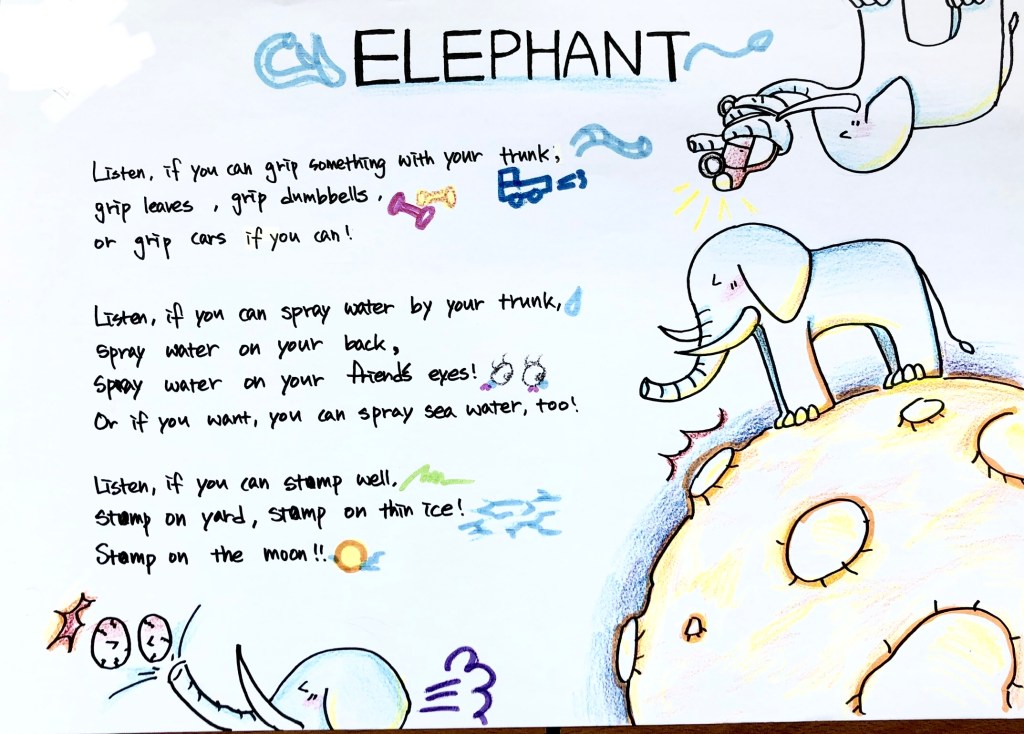 ELEPHANT
Listen, if you can grip something with your trunk,
grip leaves, grip dumbbells,
or grip cars if you can!
Listen, if you can spray water by your trunk,
spray water on your back,
spray water on your friend's eyes!
Or if you want, you can spray sea water, too!
Listen, if you can stomp well.
Stomp on yard, stomp on thin ice!
Stomp on the moon!!